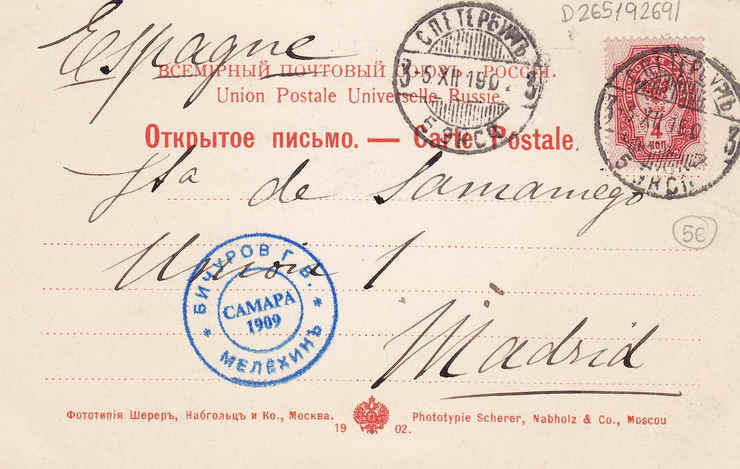 D265/9269/
Espagne
ВСЕМІРНЫЙ ПОЧТОВЫЙ СОЮЗЪ. РОССІЯ.
Union Postale Universelle. Russie.
Открытое письмо. — Carte Postale.
С.ПЕТЕРБУРГЪ
3 5 XII 190 3
5 ЭКСП.
4
КОП
Sta de Samaniego
5€
Union 1
БИЧУРОВ Г.В.
САМАРА
1909
МЕЛЁХИНЪ
Madrid
Фототипія Шереръ, Набгольцъ и Ко., Москва.
19 02.
Phototypie Scherer, Nabholz & Co., Moscou